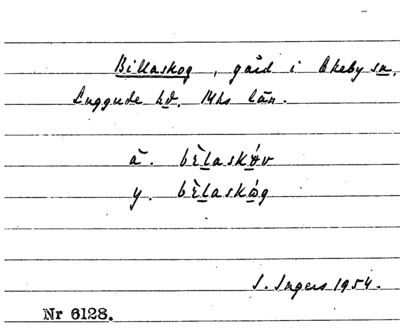 Billaskog, gård i Ekeby sn,
Luggude hd. Mhs län.
ä. bèlaskǿv
y. bèlaskóg
I. Ingers 1954.
Nr 6128.